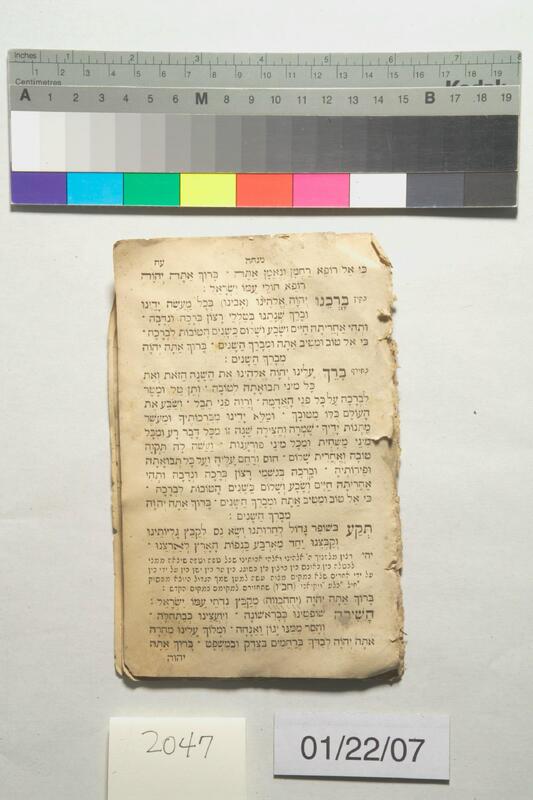 inches 1 2 3 4 5 6 7 8
1 2 3 4 5 6 7 8 9 10 11 12 13 14 15 16 17 18 19
Centimetres
A 1 2 3 4 5 6 M 8 9 10 11 12 13 14 15 B 17 18 19
מנחה עח
כי אל רופא רחמן ונאמן אתה · ברוך אתה יהוה
רופא חולי עמו ישראל :
בקיץ ברכנו יהוה אלהינו (אבינו) בכל מעשה ידינו
וברך שנתנו בטללי רצון ברכה ונדבה ·
ותהי אחריתה חיים ושבע ושלום כשנים הטובות לברכה ·
כי אל טוב ומטיב אתה ומברך השנים · ברוך אתה יהוה
מברך השנים :
בחורף ברך עלינו יהוה אלהינו את השנה הזאת ואת
כל מיני תבואתה לטובה · ותן טל ומטר
לברכה על כל פני האדמה · ורוה פני תבל · ושבע את
העולם כלו מטובך · ומלא ידינו מברכותיך ומעשר
מתנות ידיך · שמרה והצילה שנה זו מכל דבר רע ומכל
מיני משחית ומכל מיני פורענות · ועשה לה תקוה
טובה ואחרית שלום · חוס ורחם עליה ועל כל תבואתה
ופירותיה · וברכה בגשמי רצון ברכה ונדבה ותהי
אחריתה חיים ושבע ושלום כשנים הטובות לברכה
כי אל טוב ומטיב אתה ומברך השנים · ברוך אתה יהוה
מברך השנים :
תקע בשופר גדול לחרותנו ושא נס לקבץ גליותינו
וקבצנו יחד מארבע כנפות הארץ לארצנו ·
יהי רצון מלפניך ה' אלהינו ואלהי אבותינו שכל
על ידי אחרים שלא במקום מצוה
ברוך אתה יהוה מקבץ נדחי עמו ישראל :
השיבה שופטינו כבראשונה · ויועצינו כבתחלה ·
והסר ממנו יגון ואנחה · ומלוך עלינו מהרה
אתה יהוה לבדך ברחמים בצדק ובמשפט · ברוך אתה
יהוה
2047
01/22/07